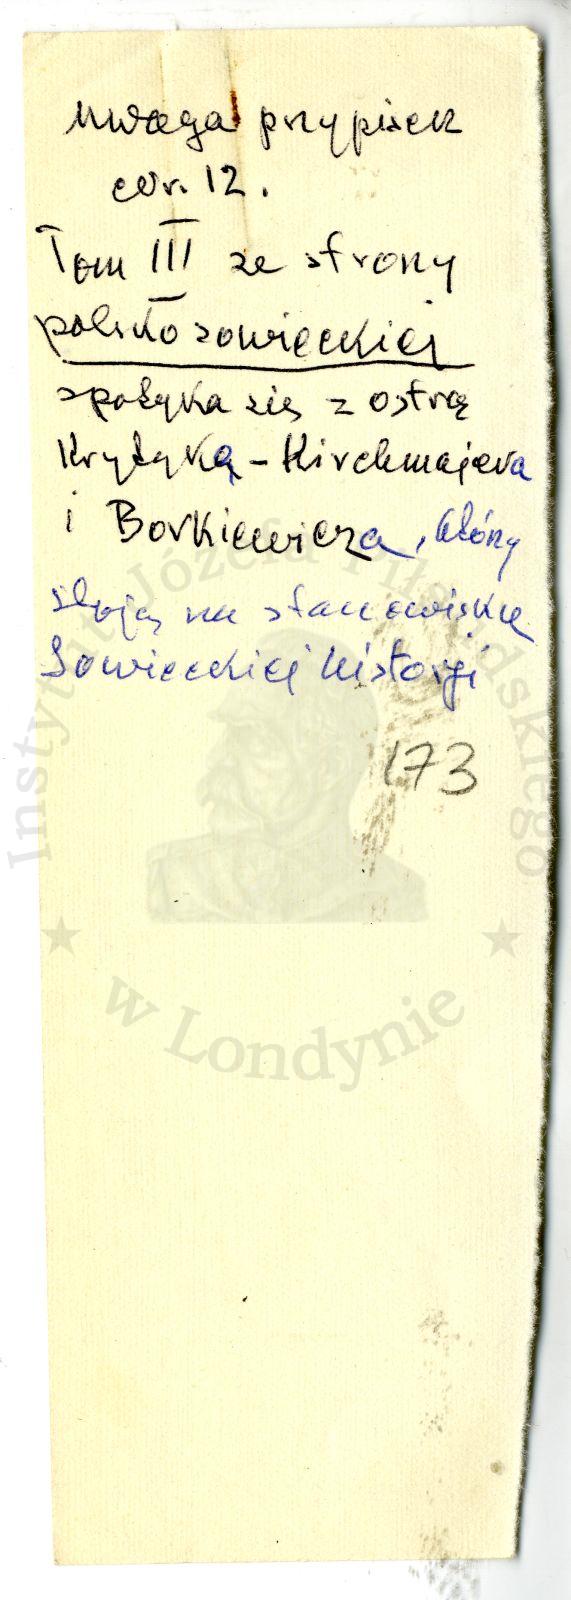 uwaga przypisek
nr. 12.
Tom III ze strony
polsko sowieckiej
spotyka się z ostrą
Krytyką - Kirchmajera
i Borkiewicza, którzy
stoją na stanowisku
Sowieckiej historji
173
Instytut Józefa Piłsudskiego
w Londynie